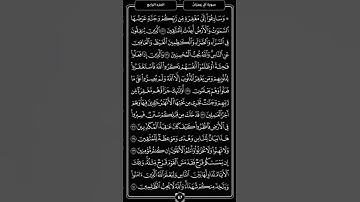 سورة آل عمران الجزء الرابع
۞ وَسَارِعُوٓا۟ إِلَىٰ مَغْفِرَةٍ مِّن رَّبِّكُمْ وَجَنَّةٍ عَرْضُهَا
ٱلسَّمَٰوَٰتُ وَٱلْأَرْضُ أُعِدَّتْ لِلْمُتَّقِينَ ١٣٣ ٱلَّذِينَ يُنفِقُونَ
فِى ٱلسَّرَّآءِ وَٱلضَّرَّآءِ وَٱلْكَٰظِمِينَ ٱلْغَيْظَ وَٱلْعَافِينَ
عَنِ ٱلنَّاسِ وَٱللَّهُ يُحِبُّ ٱلْمُحْسِنِينَ ١٣٤ وَٱلَّذِينَ إِذَا فَعَلُوا۟
فَٰحِشَةً أَوْ ظَلَمُوٓا۟ أَنفُسَهُمْ ذَكَرُوا۟ ٱللَّهَ فَٱسْتَغْفَرُوا۟
لِذُنُوبِهِمْ وَمَن يَغْفِرُ ٱلذُّنُوبَ إِلَّا ٱللَّهُ وَلَمْ يُصِرُّوا۟ عَلَىٰ
مَا فَعَلُوا۟ وَهُمْ يَعْلَمُونَ ١٣٥ أُو۟لَٰٓئِكَ جَزَآؤُهُم مَّغْفِرَةٌ مِّن
رَّبِّهِمْ وَجَنَّٰتٌ تَجْرِى مِن تَحْتِهَا ٱلْأَنْهَٰرُ خَٰلِدِينَ فِيهَا وَنِعْمَ
أَجْرُ ٱلْعَٰمِلِينَ ١٣٦ قَدْ خَلَتْ مِن قَبْلِكُمْ سُنَنٌ فَسِيرُوا۟
فِى ٱلْأَرْضِ فَٱنظُرُوا۟ كَيْفَ كَانَ عَٰقِبَةُ ٱلْمُكَذِّبِينَ ١٣٧
هَٰذَا بَيَانٌ لِّلنَّاسِ وَهُدًى وَمَوْعِظَةٌ لِّلْمُتَّقِينَ ١٣٨
وَلَا تَهِنُوا۟ وَلَا تَحْزَنُوا۟ وَأَنتُمُ ٱلْأَعْلَوْنَ إِن كُنتُم مُّؤْمِنِينَ ١٣٩
إِن يَمْسَسْكُمْ قَرْحٌ فَقَدْ مَسَّ ٱلْقَوْمَ قَرْحٌ مِّثْلُهُۥ وَتِلْكَ
ٱلْأَيَّامُ نُدَاوِلُهَا بَيْنَ ٱلنَّاسِ وَلِيَعْلَمَ ٱللَّهُ ٱلَّذِينَ ءَامَنُوا۟
وَيَتَّخِذَ مِنكُمْ شُهَدَآءَ وَٱللَّهُ لَا يُحِبُّ ٱلظَّٰلِمِينَ ١٤٠
٦٧